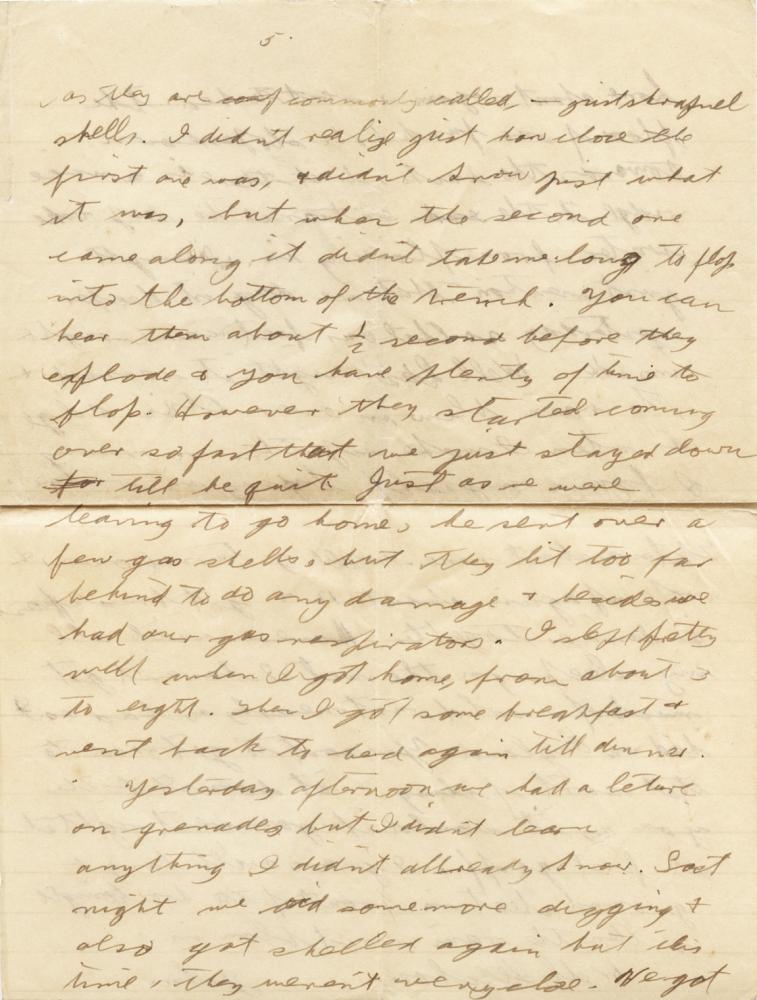 5.
as they are commonly called, — just shrapnel
shells. I didn't realize just how close the
first one was, & didn't know just what
it was, but when the second one
came along it didn't take me long to flop
into the bottom of the trench. You can
hear them about ½ second before they
explode & you have plenty of time to
flop. However they started coming
over so fast that we just stayed down
for till he quit. Just as we were
leaving to go home, he sent over a
few gas shells, but they lit too far
behind to do any damage & besides we
had our gas respirators. I slept pretty
well when I got home, from about 3
to eight. Then I got some breakfast &
went back to bed again till dinner.
Yesterday afternoon we had a leture
on grenades but I didn't learn
anything I didn't allready know. Last
night we did some more digging &
also got shelled again but this
time, they weren't very close. We got